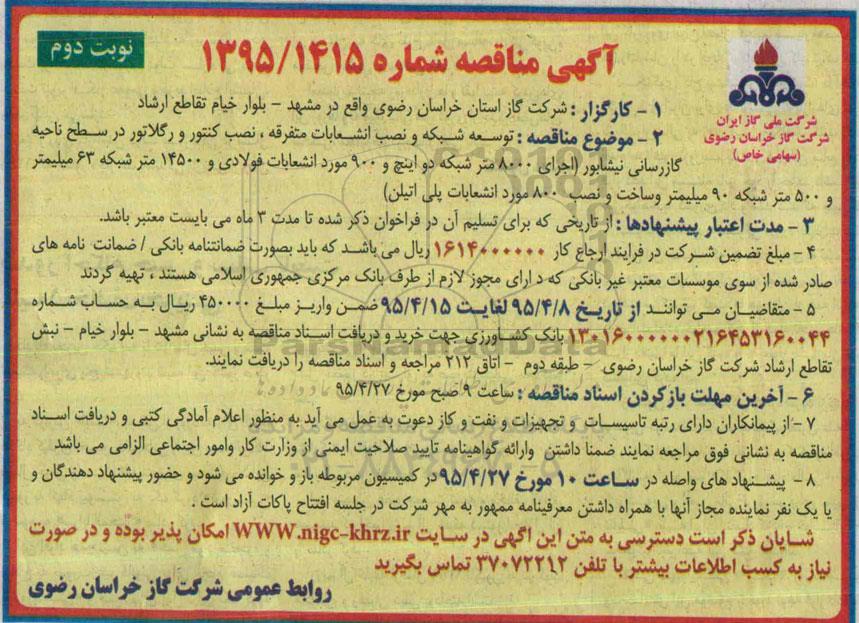 نوبت دوم
آگهی مناقصه شماره ۱۳۹۵/۱۴۱۵
شرکت ملی گاز ایران
شرکت گاز خراسان رضوی
(سهامی خاص)
۱ - کارگزار : شرکت گاز استان خراسان رضوی واقع در مشهد - بلوار خیام تقاطع ارشاد
۲ - موضوع مناقصه : توسعه شبکه و نصب انشعابات متفرقه ، نصب کنتور و رگلاتور در سطح ناحیه
گازرسانی نیشابور (اجرای ۸۰۰۰ متر شبکه دو اینچ و ۹۰۰ مورد انشعابات فولادی و ۱۴۵۰۰ متر شبکه ۶۳ میلیمتر
و ۵۰۰ متر شبکه ۹۰ میلیمتر وساخت و نصب ۸۰۰ مورد انشعابات پلی اتیلن)
۳ - مدت اعتبار پیشنهادها : از تاریخی که برای تسلیم آن در فراخوان ذکر شده تا مدت ۳ ماه می بایست معتبر باشد.
۴ - مبلغ تضمین شرکت در فرایند ارجاع کار ۱۶۱۴۰۰۰۰۰۰ ریال می باشد که باید بصورت ضمانتنامه بانکی / ضمانت نامه های
صادر شده از سوی موسسات معتبر غیر بانکی که دارای مجوز لازم از طرف بانک مرکزی جمهوری اسلامی هستند ، تهیه گردند
۵ - متقاضیان می توانند از تاریخ ۹۵/۴/۸ لغایت ۹۵/۴/۱۵ ضمن واریز مبلغ ۴۵۰۰۰۰ ریال به حساب شماره
۱۳۰۱۶۰۰۰۰۰۰۲۱۶۴۵۳۱۶۰۰۴۴ بانک کشاورزی جهت خرید و دریافت اسناد مناقصه به نشانی مشهد - بلوار خیام - نبش
تقاطع ارشاد شرکت گاز خراسان رضوی - طبقه دوم - اتاق ۲۱۲ مراجعه و اسناد مناقصه را دریافت نمایند.
۶ - آخرین مهلت بازکردن اسناد مناقصه : ساعت ۹ صبح مورخ ۹۵/۴/۲۷
۷ - از پیمانکاران دارای رتبه تاسیسات و تجهیزات و نفت و کاز دعوت به عمل می آید به منظور اعلام آمادگی کتبی و دریافت اسناد
مناقصه به نشانی فوق مراجعه نمایند ضمنا داشتن وارائه گواهینامه تایید صلاحیت ایمنی از وزارت کار وامور اجتماعی الزامی می باشد
۸ - پیشنهاد های واصله در ساعت ۱۰ مورخ ۹۵/۴/۲۷ در کمیسیون مربوطه باز و خوانده می شود و حضور پیشنهاد دهندگان و
یا یک نفر نماینده مجاز آنها با همراه داشتن معرفینامه ممهور به مهر شرکت در جلسه افتتاح پاکات آزاد است .
شایان ذکر است دسترسی به متن این اگهی در سایت WWW.nigc-khrz.ir امکان پذیر بوده و در صورت
نیاز به کسب اطلاعات بیشتر با تلفن ۳۷۰۷۲۲۱۲ تماس بگیرید
روابط عمومی شرکت گاز خراسان رضوی